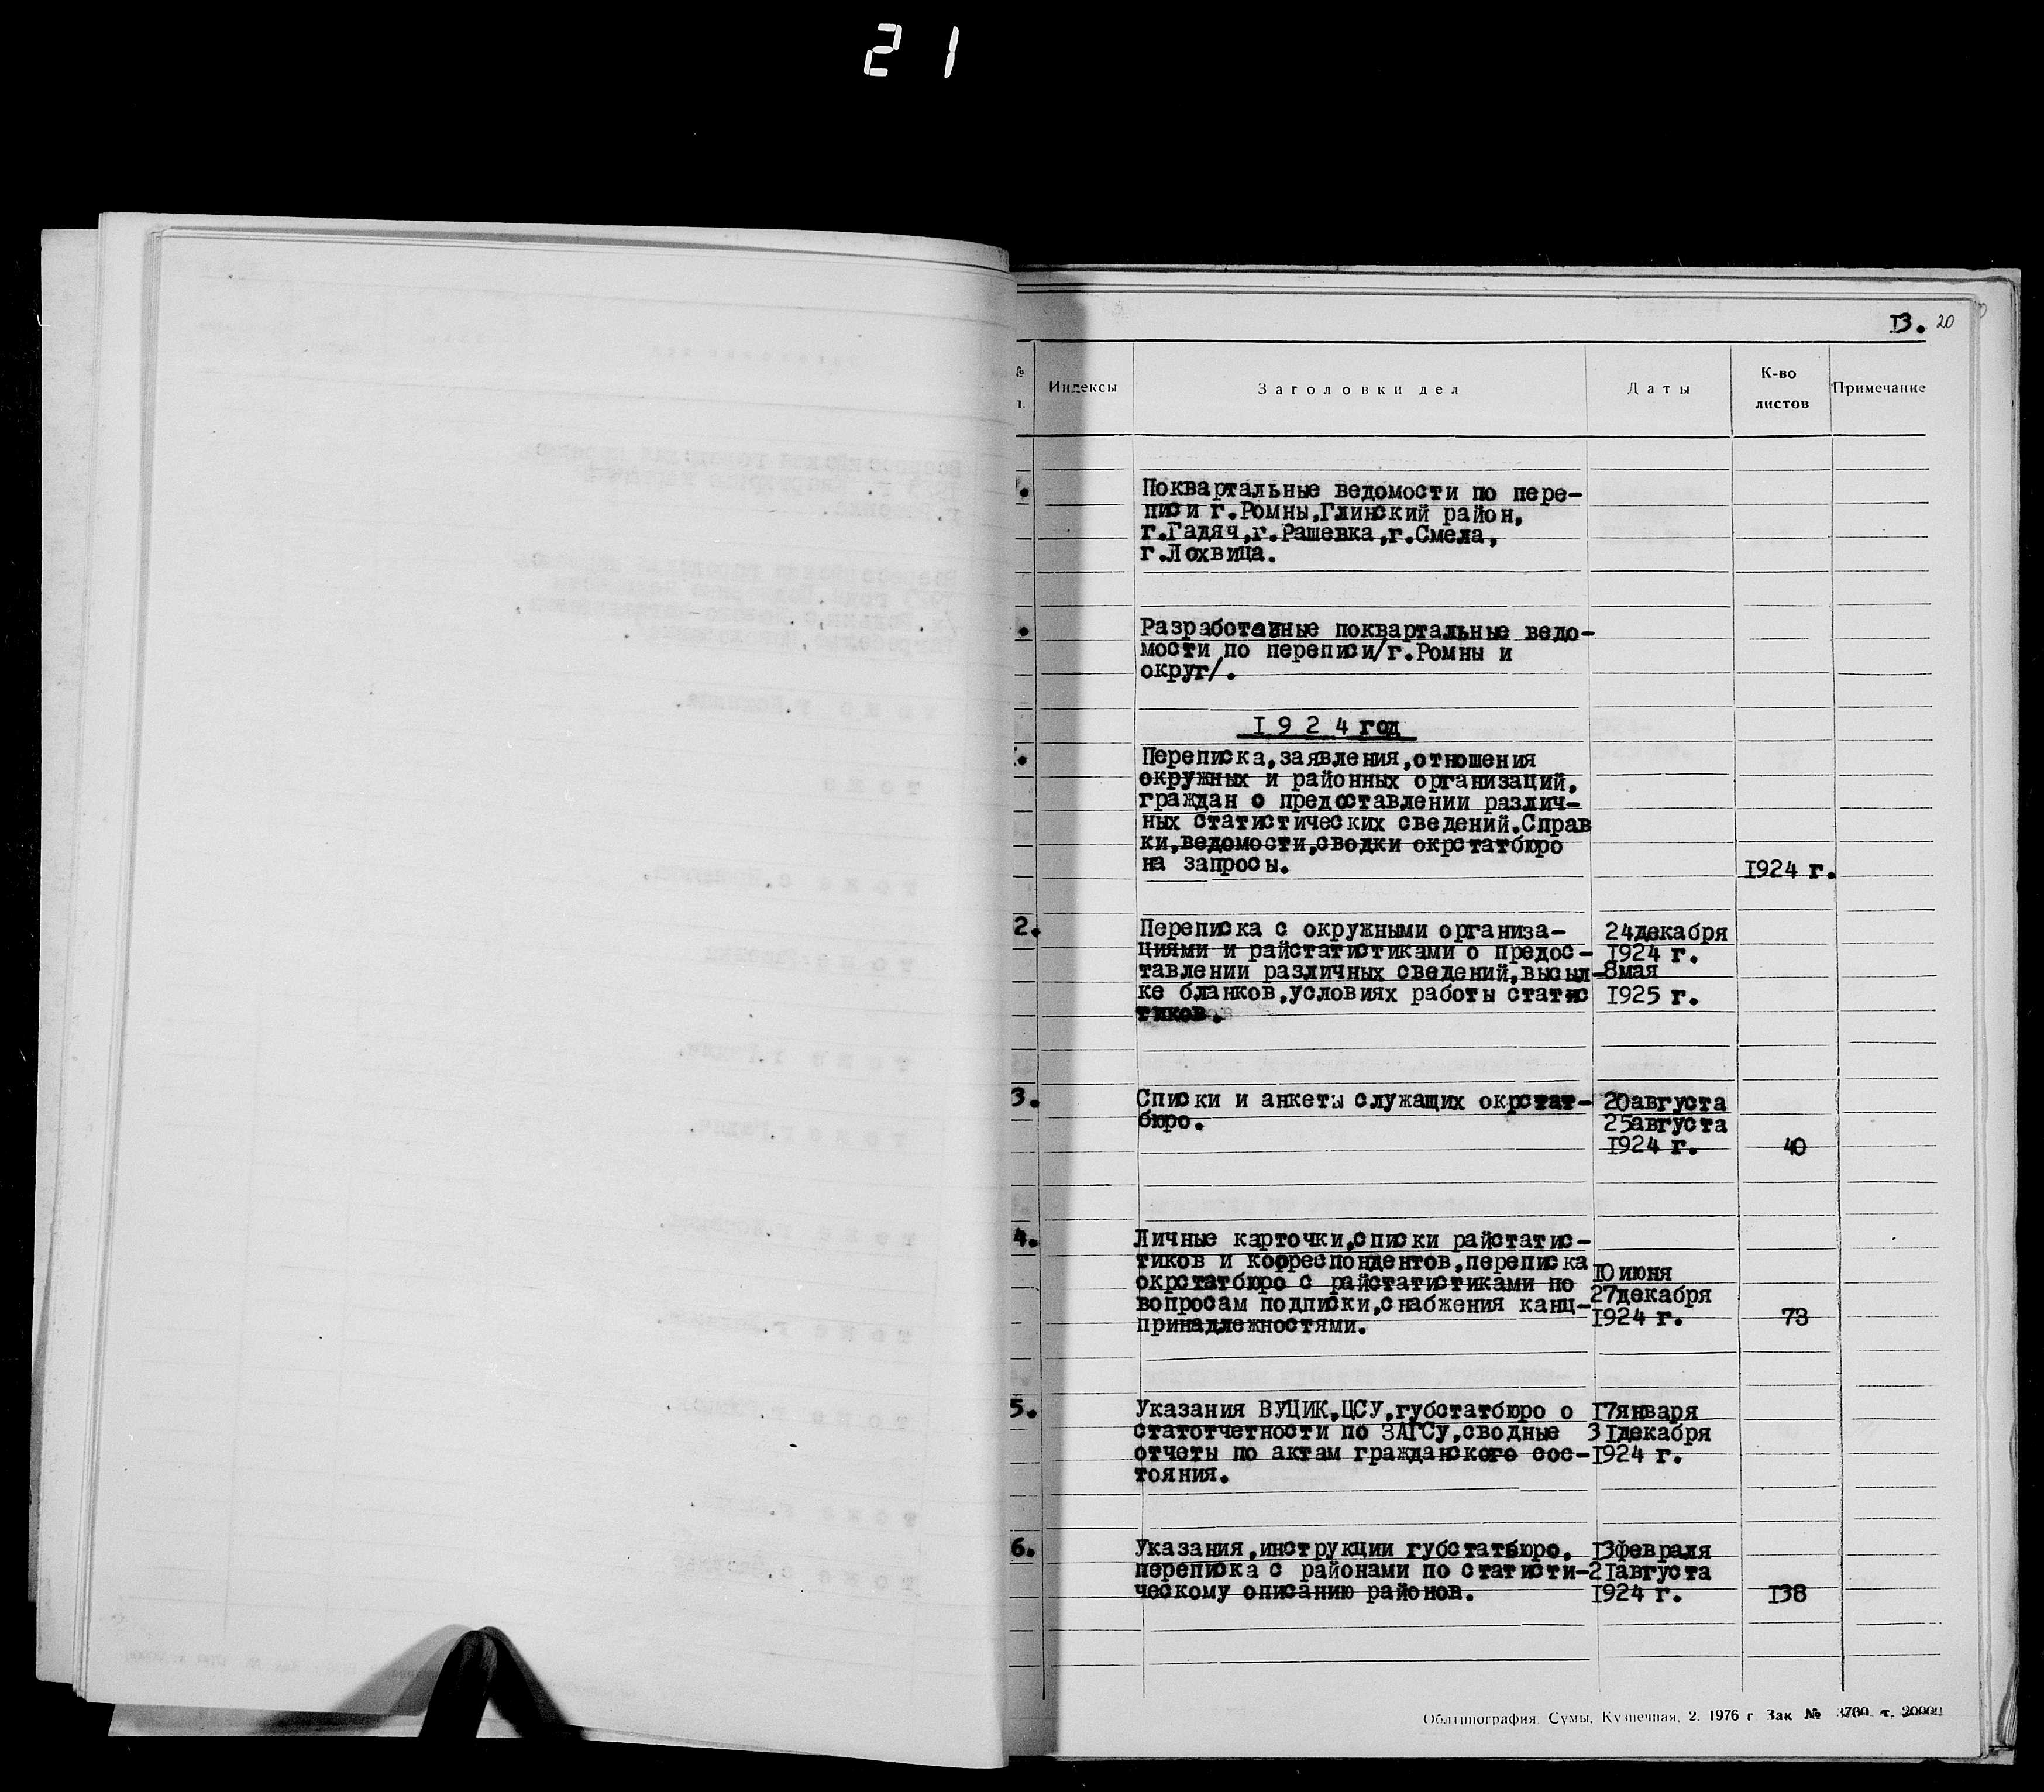 21
13. 20
№ Индексы Заголовки дел Даты К-во листов Примечание
Поквартальные ведомости по пере-
писи г.Ромны,Глинский район,
г.Гадяч,г.Рашевка,г.Смела,
г.Лохвица.
Разработавные поквартальные ведо-
мости по переписи/г.Ромны и
округ/.
I 9 2 4 год
Переписка,заявления,отношения
окружных и районных организаций,
граждан о предоставлении различ-
ных статистических сведений.Справ
ки,ведомости,сводки окрстатбюро
на запросы. I924 г.
2. Переписка с окружными организа- 24декабря
циями и райстатистиками о предос- I924 г.
тавлении различных сведений,высыл- 8мая
ке бланков,условиях работы статис I925 г.
тиков.
3. Списки и анкеты служащих окрстат- 20августа
бюро. 25августа
I924 г. 40
4. Личные карточки,списки райстатис-
тиков и корреспондентов,переписка I0июня
окрстатбюро с райстатистиками по 27декабря
вопросам подписки,снабжения канц- I924 г. 73
принадлежностями.
5. Указания ВУЦИК,ЦСУ,губстатбюро о I7января
статотчетности по ЗАГСу,сводные 3Iдекабря
отчеты по актам гражданского сос- I924 г.
тояния.
6. Указания,инструкции губстатбюро, I3февраля
переписка с районами по статисти- 2Iавгуста
ческому описанию районов. I924 г. I38
Облтипография. Сумы, Кузнечная, 2. 1976 г Зак № 3760 т. 20000